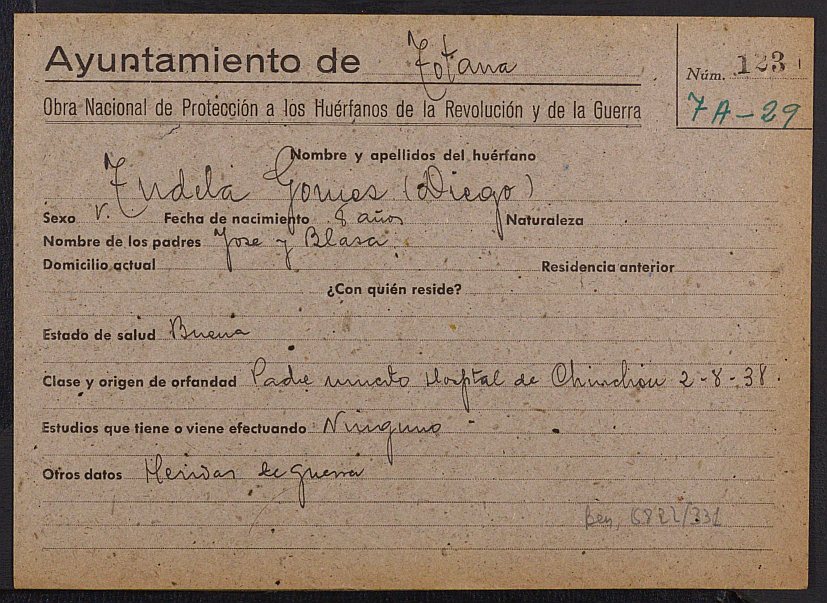 Ayuntamiento de Totana
Núm. 123
Obra Nacional de Protección a los Huérfanos de la Revolución y de la Guerra
7A-29
Nombre y apellidos del huérfano
Tudela Gomes (Diego)
Sexo V. Fecha de nacimiento 8 años Naturaleza
Nombre de los padres Jose y Blasa
Domicilio actual Residencia anterior
¿Con quién reside?
Estado de salud Buena
Clase y origen de orfandad Padre muerto Hospital de Chinchon 2-8-38.
Estudios que tiene o viene efectuando Ninguno
Otros datos Heridas de guerra
Ben, 6822/331